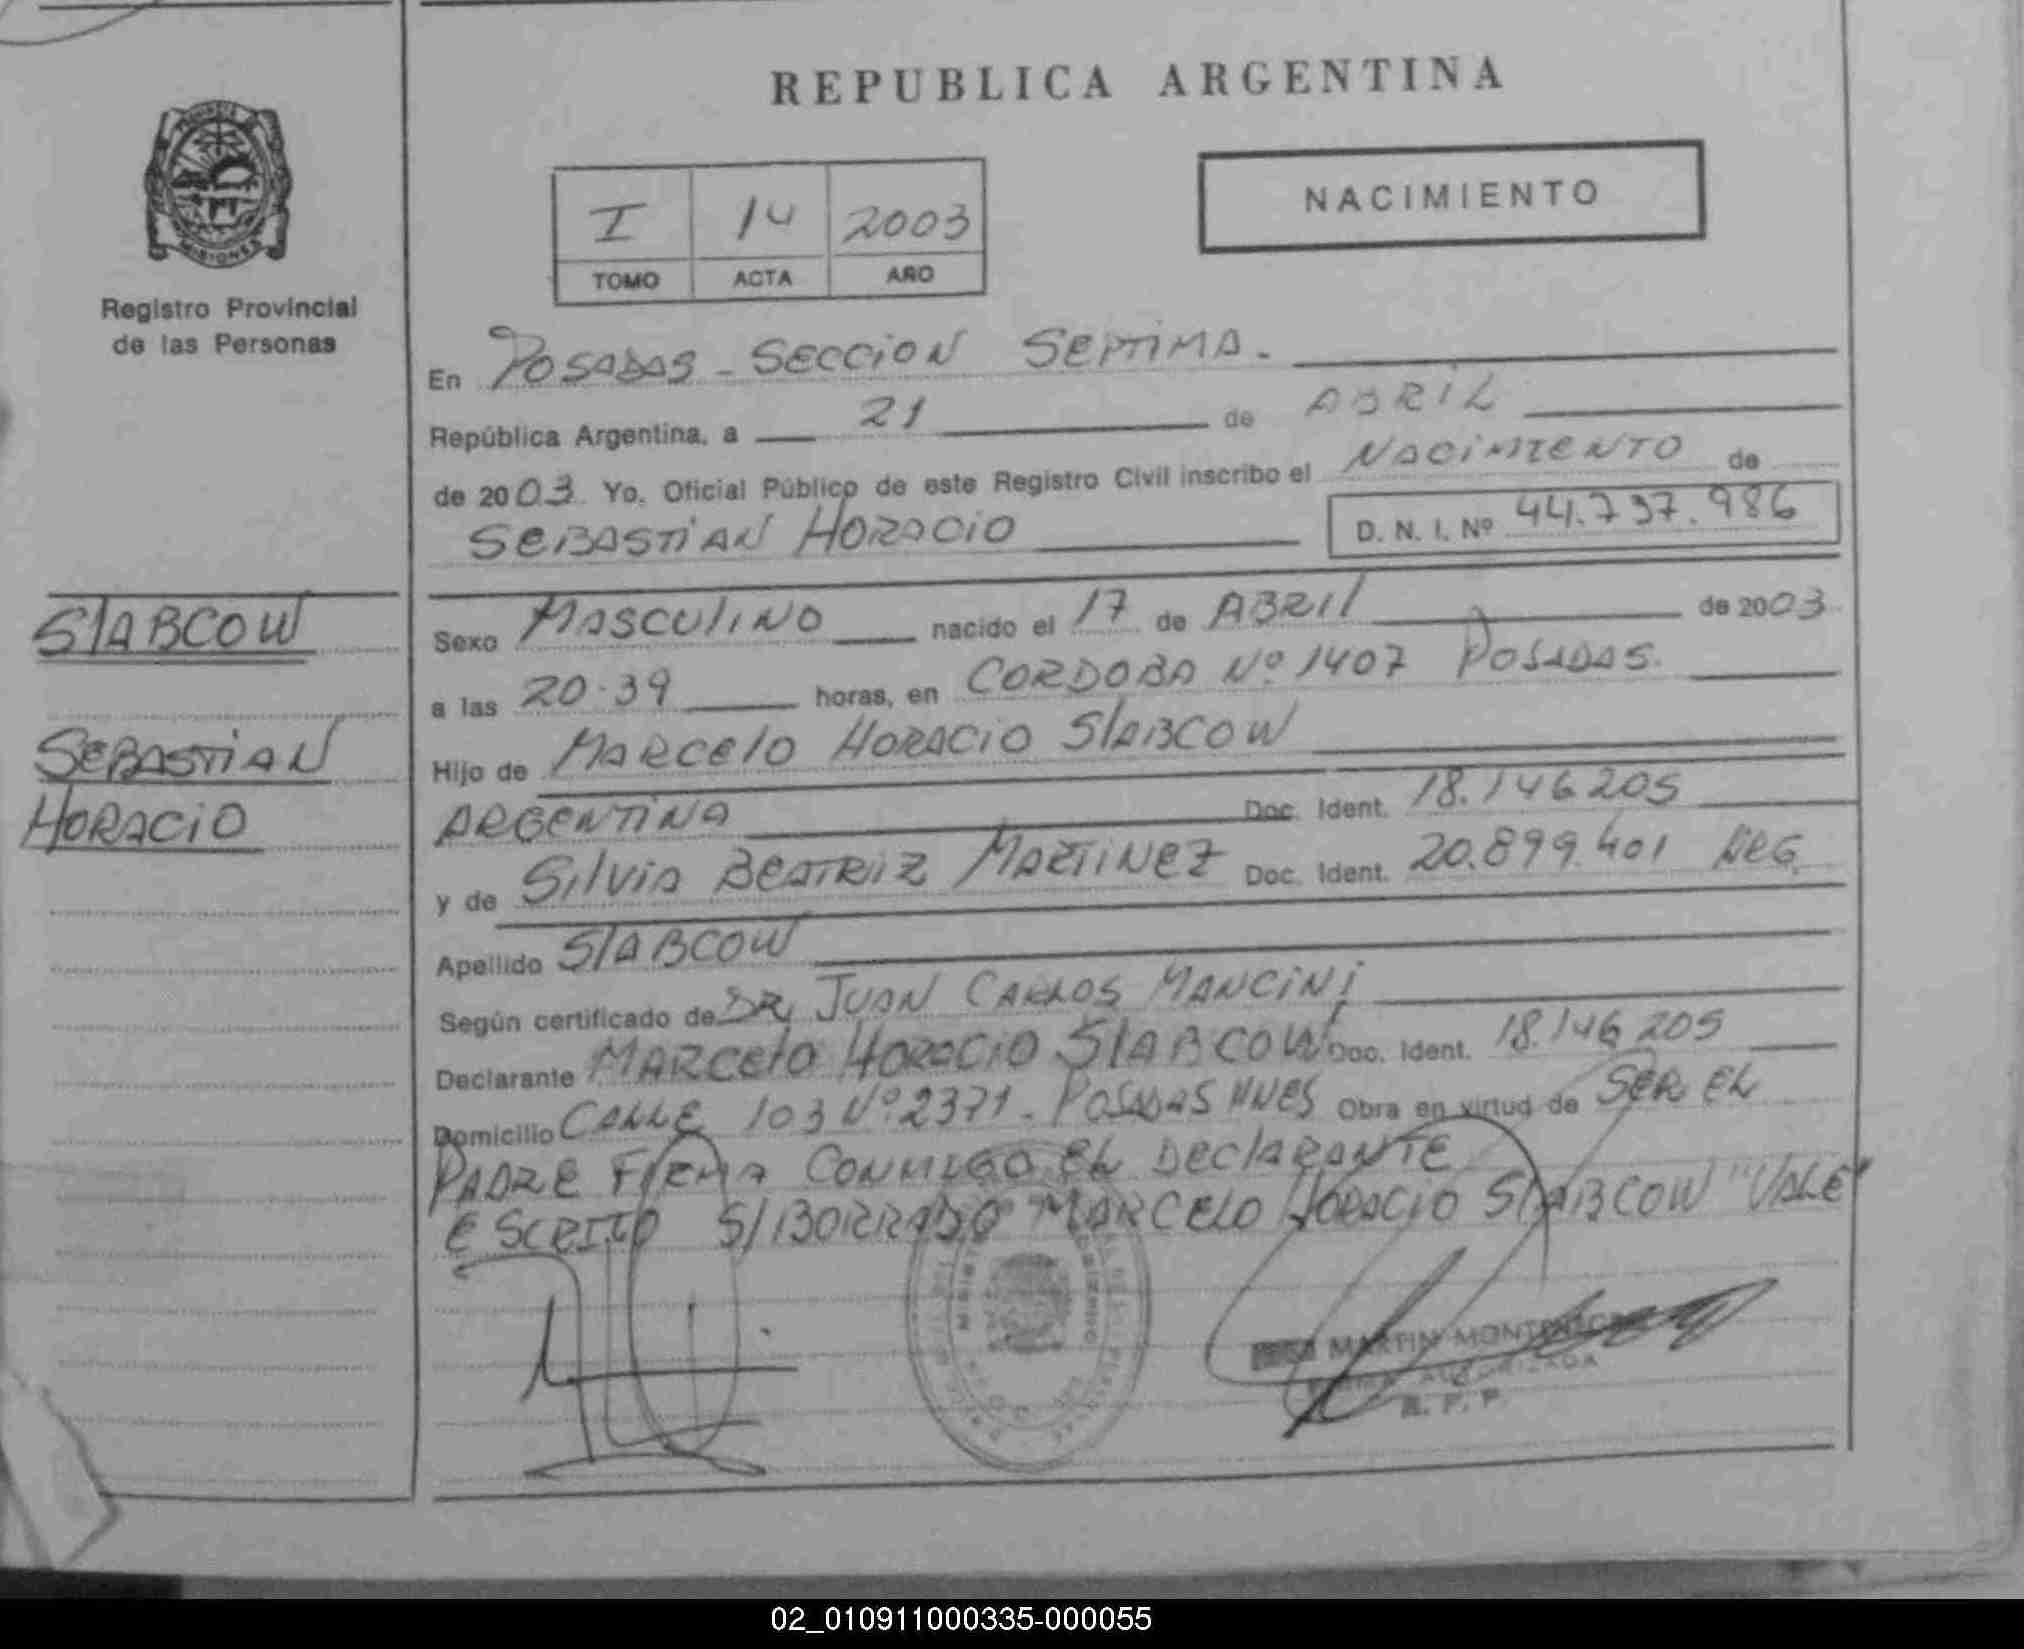 REPUBLICA ARGENTINA
NACIMIENTO
I 14 2003
TOMO ACTA AÑO
Registro Provincial
de las Personas
MISIONES
En POSADAS - SECCION SEPTIMA.
República Argentina, a 21 de ABRIL
de 2003. Yo, Oficial Público de este Registro Civil inscribo el NACIMIENTO de
SEBASTIAN HORACIO D. N. I. Nº 44.737.986
SLABCOW
SEBASTIAN
HORACIO
Sexo MASCULINO nacido el 17 de ABRIL de 2003
a las 20.39 horas, en CORDOBA Nº 1407 POSADAS.
Hijo de MARCELO HORACIO SLABCOW
ARGENTINA Doc. Ident. 18.146.205
y de SILVIA BEATRIZ MARTINEZ Doc. Ident. 20.899.401 ARG.
Apellido SLABCOW
Según certificado de DR. JUAN CARLOS MANCINI
Declarante MARCELO HORACIO SLABCOW Doc. Ident. 18.146.205
Domicilio CALLE 103 Nº 2371. POSADAS MNES Obra en virtud de SER EL
PADRE FIRMA CONMIGO EL DECLARANTE
ESCRITO S/BORRADO MARCELO HORACIO SLABCOW "VALE"
MARTIN
AUTORIZADA
R. P. P.
02_010911000335-000055